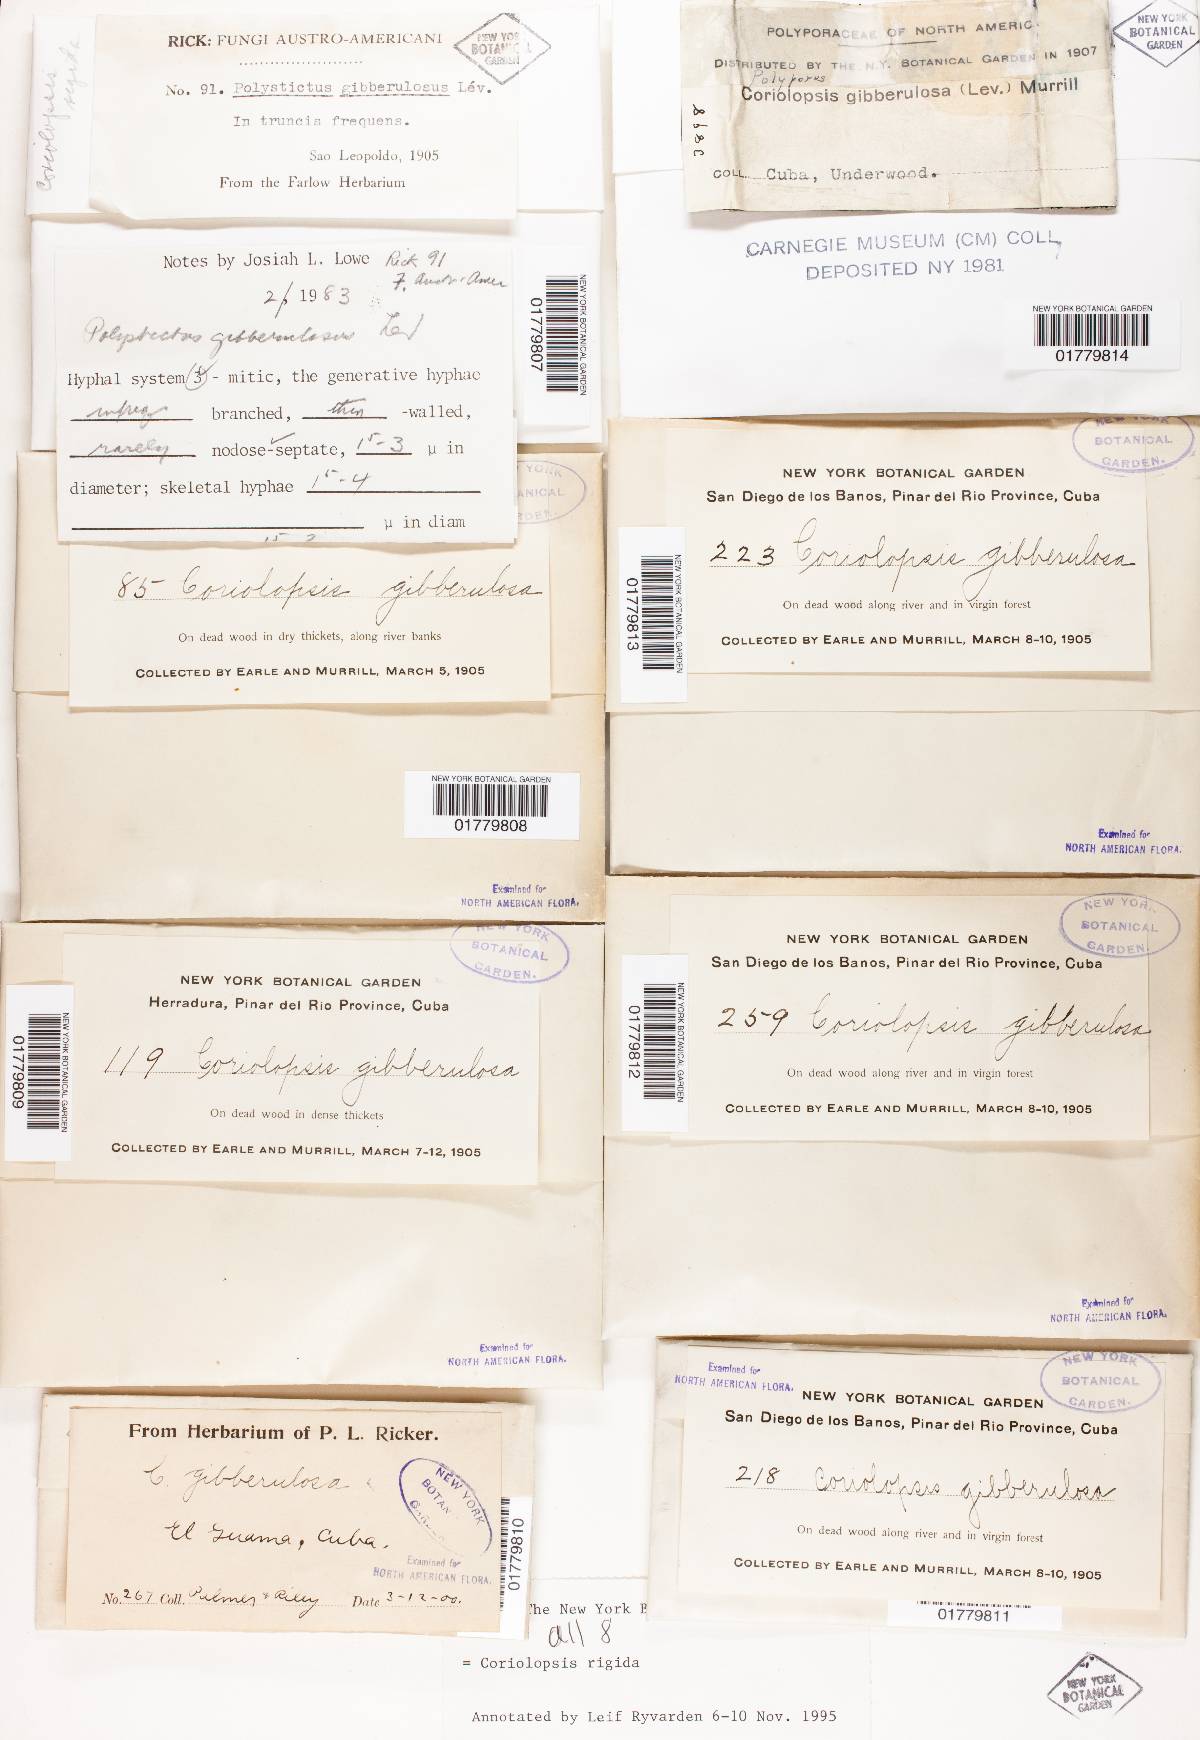 Coriolopsis rigida
RICK: FUNGI AUSTRO-AMERICANI
No. 91. Polystictus gibberulosus Lév.
In truncis frequens.
Sao Leopoldo, 1905
From the Farlow Herbarium
NEW YORK BOTANICAL GARDEN
Notes by Josiah L. Lowe Rick 91
F. Austr. Amer
2/ 1983
Polystictus gibberulosus Lev
Hyphal system 3 - mitic, the generative hyphae
infreq branched, thin -walled,
rarely nodose-septate, 1.5-3 µ in
diameter; skeletal hyphae 1.5-4
µ in diam
NEW YORK BOTANICAL GARDEN
01779807
YORK
ANICAL
RDEN.
85 Coriolopsis gibberulosa
On dead wood in dry thickets, along river banks
COLLECTED BY EARLE AND MURRILL, MARCH 5, 1905
NEW YORK BOTANICAL GARDEN
01779808
Examined for
NORTH AMERICAN FLORA.
NEW YORK
BOTANICAL
GARDEN.
NEW YORK BOTANICAL GARDEN
Herradura, Pinar del Rio Province, Cuba
119 Coriolopsis gibberulosa
On dead wood in dense thickets
COLLECTED BY EARLE AND MURRILL, MARCH 7-12, 1905
NEW YORK BOTANICAL GARDEN
01779809
Examined for
NORTH AMERICAN FLORA.
From Herbarium of P. L. Ricker.
C. gibberulosa
El Guama, Cuba.
No. 267 Coll. Palmer & Riley Date 3-12-00.
NEW YORK
BOTAN
Examined for
NORTH AMERICAN FLORA.
01779810
POLYPORACEAE OF NORTH AMERIC
DISTRIBUTED BY THE N.Y. BOTANICAL GARDEN IN 1907
Polyporus
Coriolopsis gibberulosa (Lev.) Murrill
COLL. Cuba, Underwood.
NEW YORK
BOTANICAL
GARDEN
CARNEGIE MUSEUM (CM) COLL,
DEPOSITED NY 1981
NEW YORK BOTANICAL GARDEN
01779814
NEW YORK
BOTANICAL
GARDEN.
NEW YORK BOTANICAL GARDEN
San Diego de los Banos, Pinar del Rio Province, Cuba
223 Coriolopsis gibberulosa
On dead wood along river and in virgin forest
COLLECTED BY EARLE AND MURRILL, MARCH 8-10, 1905
NEW YORK BOTANICAL GARDEN
01779813
Examined for
NORTH AMERICAN FLORA.
NEW YOR
BOTANICAL
GARDEN.
NEW YORK BOTANICAL GARDEN
San Diego de los Banos, Pinar del Rio Province, Cuba
259 Coriolopsis gibberulosa
On dead wood along river and in virgin forest
COLLECTED BY EARLE AND MURRILL, MARCH 8-10, 1905
NEW YORK BOTANICAL GARDEN
01779812
Examined for
NORTH AMERICAN FLORA.
Examined for
NORTH AMERICAN FLORA.
NEW YORK
BOTANICAL
GARDEN.
NEW YORK BOTANICAL GARDEN
San Diego de los Banos, Pinar del Rio Province, Cuba
218 Coriolopsis gibberulosa
On dead wood along river and in virgin forest
COLLECTED BY EARLE AND MURRILL, MARCH 8-10, 1905
01779811
he New York B
all 8
= Coriolopsis rigida
Annotated by Leif Ryvarden 6-10 Nov. 1995
NEW YORK
BOTANICAL
GARDEN